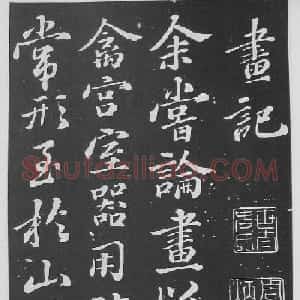 畫記
余嘗論畫以
禽宮室器用
常形至於山
Shufaziliao.com